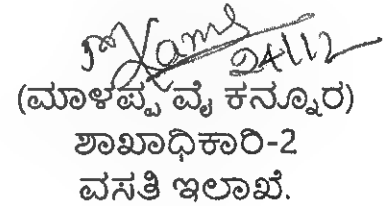 24/12
(ಮಾಳಪ್ಪ ವೈ ಕನ್ನೂರ)
ಶಾಖಾಧಿಕಾರಿ-2
ವಸತಿ ಇಲಾಖೆ.